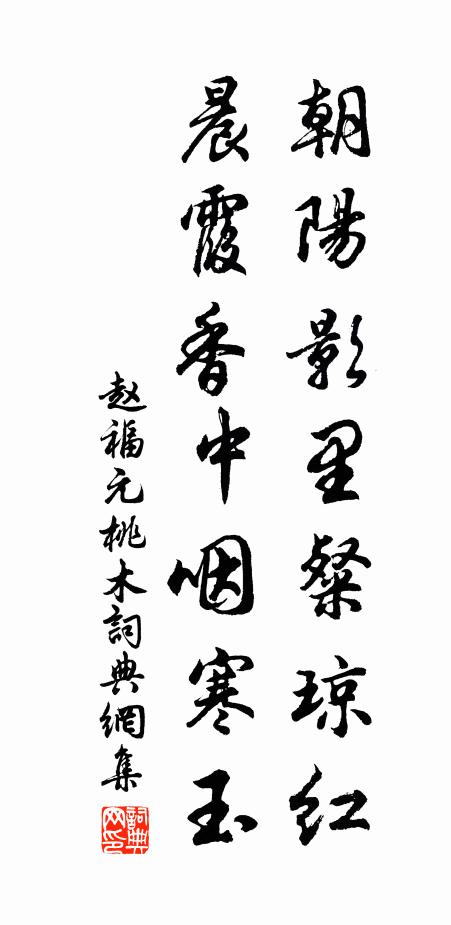 朝陽影里粲琼红
晨霞香中咽寒玉
赵福元桃木詞典網集
詞典网印